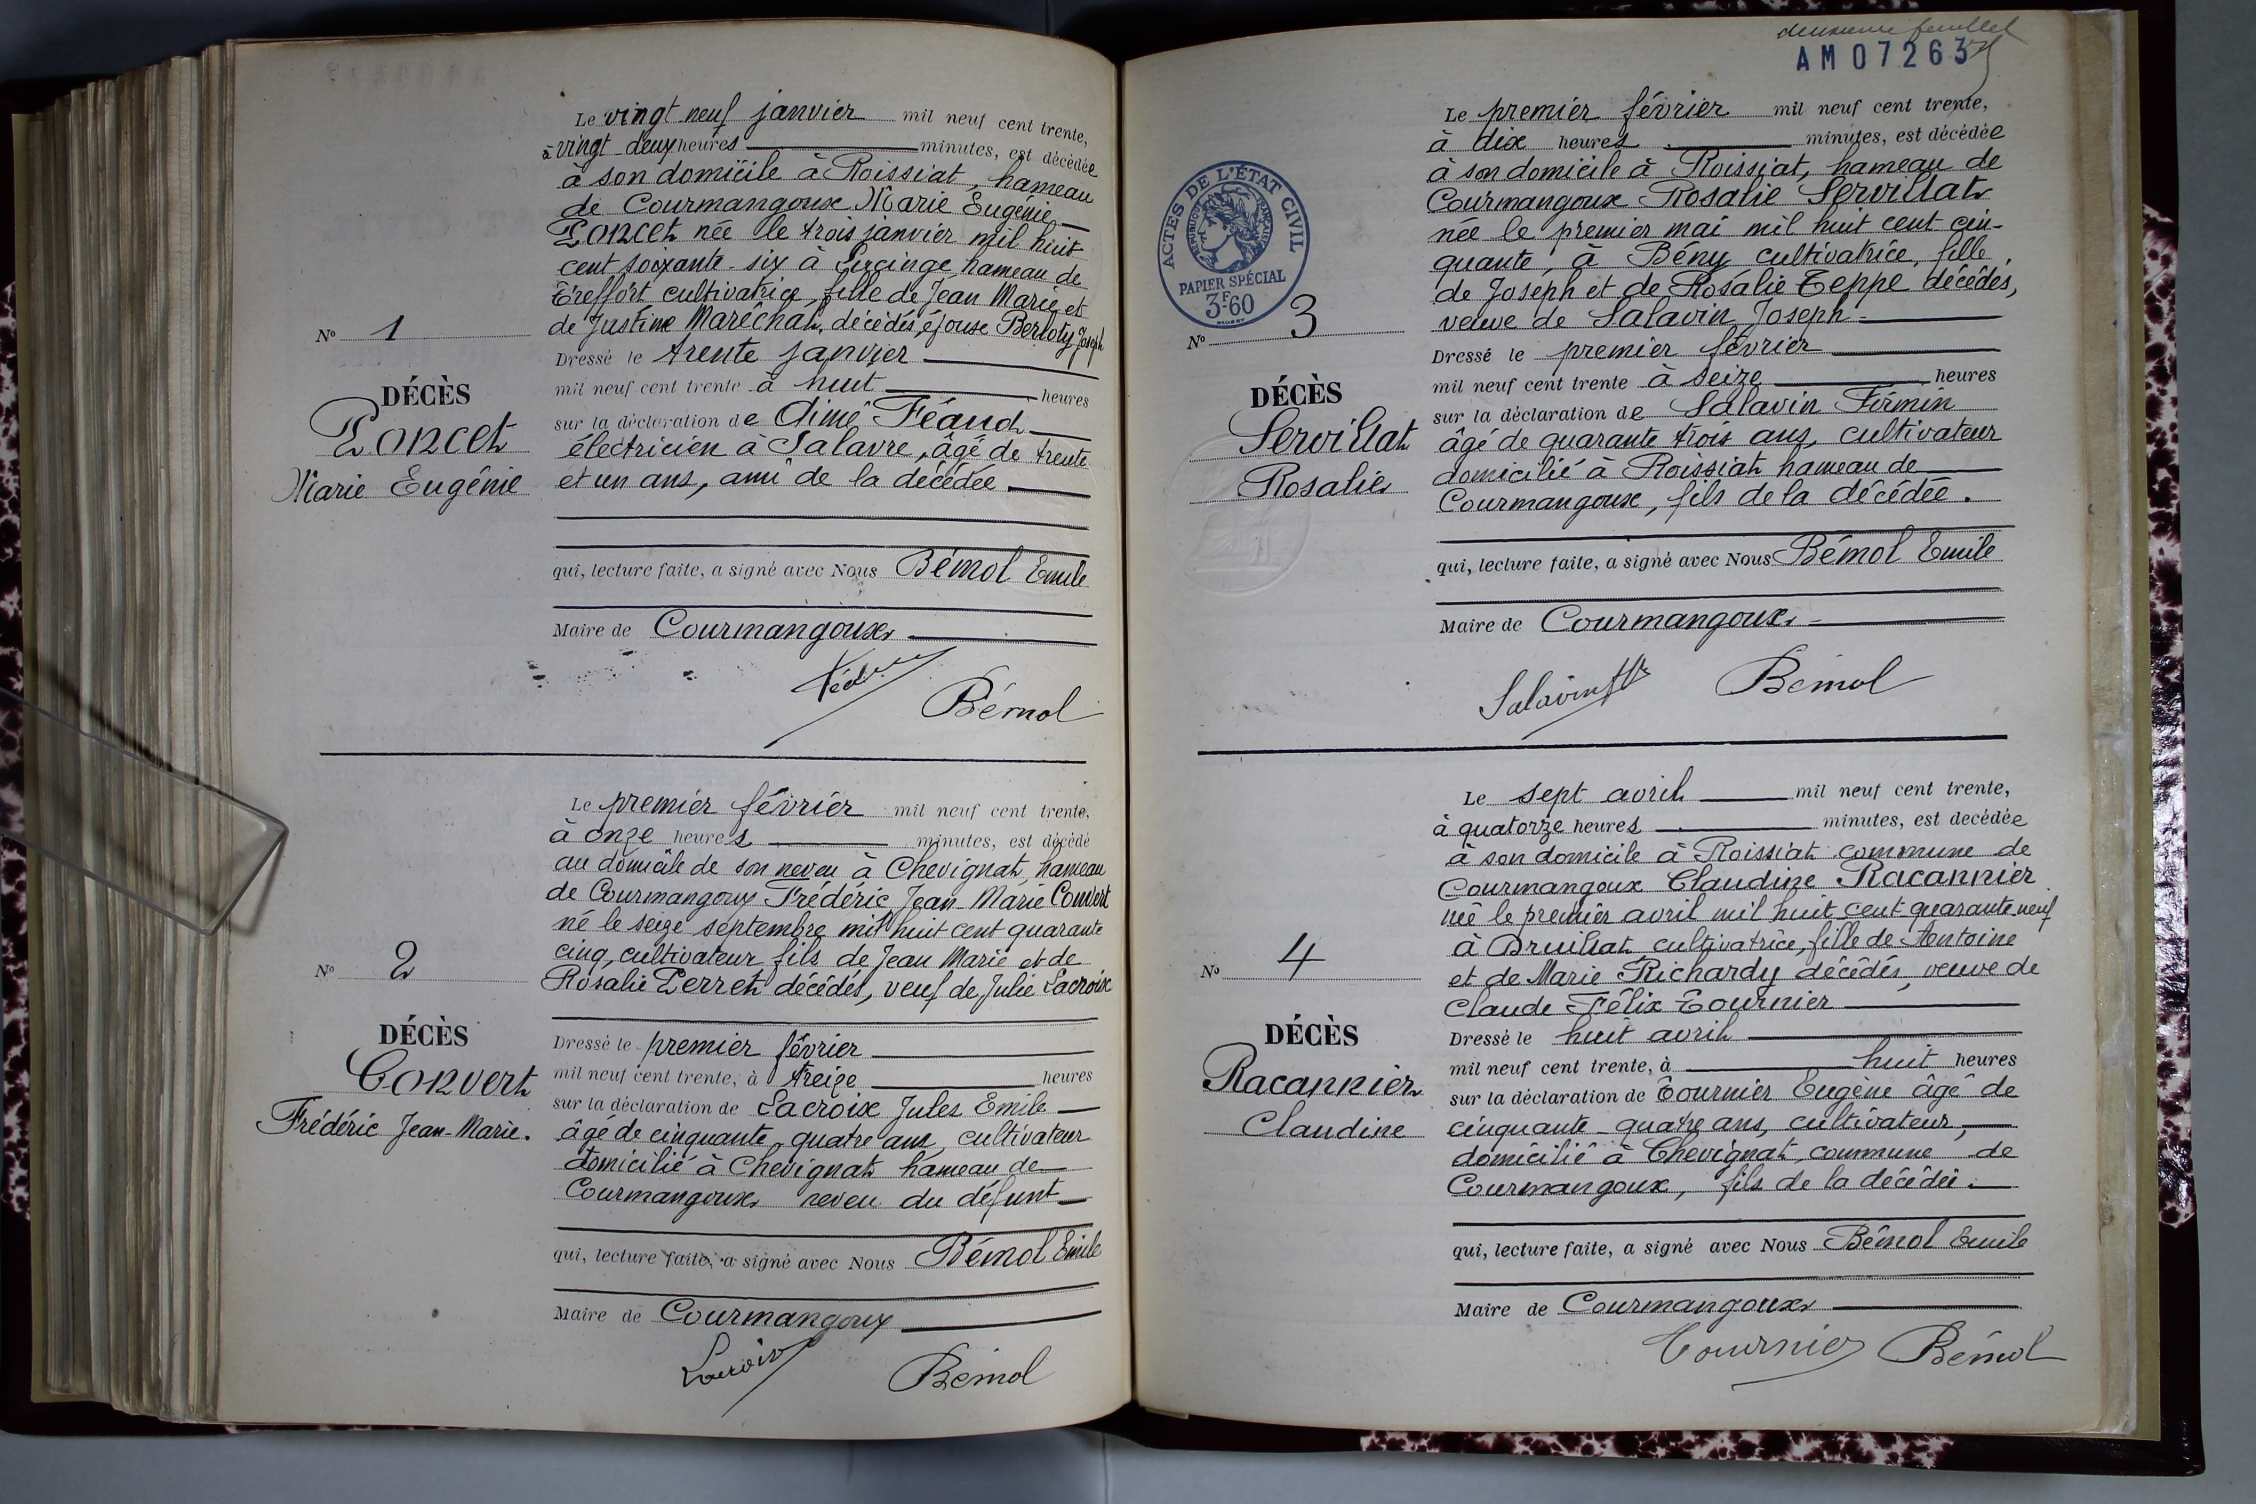 Le vingt neuf janvier mil neuf cent trente,
à vingt deux heures minutes, est décédée
à son domicile à Roissiat, hameau
de Courmangoux Marie Eugénie
Poncet née le trois janvier mil huit
cent soixante-six à Lucinge hameau de
Treffort cultivatrice, fille de Jean Marie et
de Justine Maréchal, décédés, épouse Berloty Joseph
N° 1
Dressé le trente janvier
mil neuf cent trente à huit heures
DÉCÈS
Poncet
Marie Eugénie
sur la déclaration de Aimé Féaud
électricien à Salavre, âgé de trente
et un ans, ami de la décédée
qui, lecture faite, a signé avec Nous Bémol Emile
Maire de Courmangoux
Bémol
Le premier février mil neuf cent trente,
à onze heures minutes, est décédé
au domicile de son neveu à Chevignat, hameau
de Courmangoux Frédéric Jean-Marie Convert
né le seize septembre mil huit cent quarante
cinq, cultivateur fils de Jean Marie et de
Rosalie Perret décédés, veuf de Julie Lacroix
N° 2
DÉCÈS
Convert
Frédéric Jean-Marie.
Dressé le premier février
mil neuf cent trente, à treize heures
sur la déclaration de Lacroix Jules Emile
âgé de cinquante-quatre ans, cultivateur
domicilié à Chevignat hameau de
Courmangoux neveu du défunt
qui, lecture faite, a signé avec Nous Bémol Emile
Maire de Courmangoux
Lacroix Bémol
deuxième feuillet
AM07263
Le premier février mil neuf cent trente,
à dix heures minutes, est décédée
à son domicile à Roissiat, hameau de
Courmangoux Rosalie Servillat
née le premier mai mil huit cent cin-
quante, à Bény cultivatrice, fille
de Joseph et de Rosalie Teppe décédés,
veuve de Salavin Joseph
ACTES DE L'ÉTAT CIVIL
RÉPUBLIQUE FRANÇAISE
PAPIER SPÉCIAL
3F60
N° 3
DÉCÈS
Servillat
Rosalie
Dressé le premier février
mil neuf cent trente à seize heures
sur la déclaration de Salavin Firmin
âgé de quarante trois ans, cultivateur
domicilié à Roissiat hameau de
Courmangoux, fils de la décédée.
qui, lecture faite, a signé avec Nous Bémol Emile
Maire de Courmangoux
Bémol
Le sept avril mil neuf cent trente,
à quatorze heures minutes, est décédée
à son domicile à Roissiat commune de
Courmangoux Claudine Racannier
née le premier avril mil huit cent quarante neuf
à Druillat, cultivatrice, fille de Antoine
et de Marie Richardy décédés, veuve de
Claude Félix Tournier
N° 4
DÉCÈS
Racannier
Claudine
Dressé le huit avril
mil neuf cent trente, à huit heures
sur la déclaration de Tournier Eugène âgé de
cinquante-quatre ans, cultivateur,
domicilié à Chevignat, commune de
Courmangoux, fils de la décédée.
qui, lecture faite, a signé avec Nous Bémol Emile
Maire de Courmangoux
Tournier Bémol